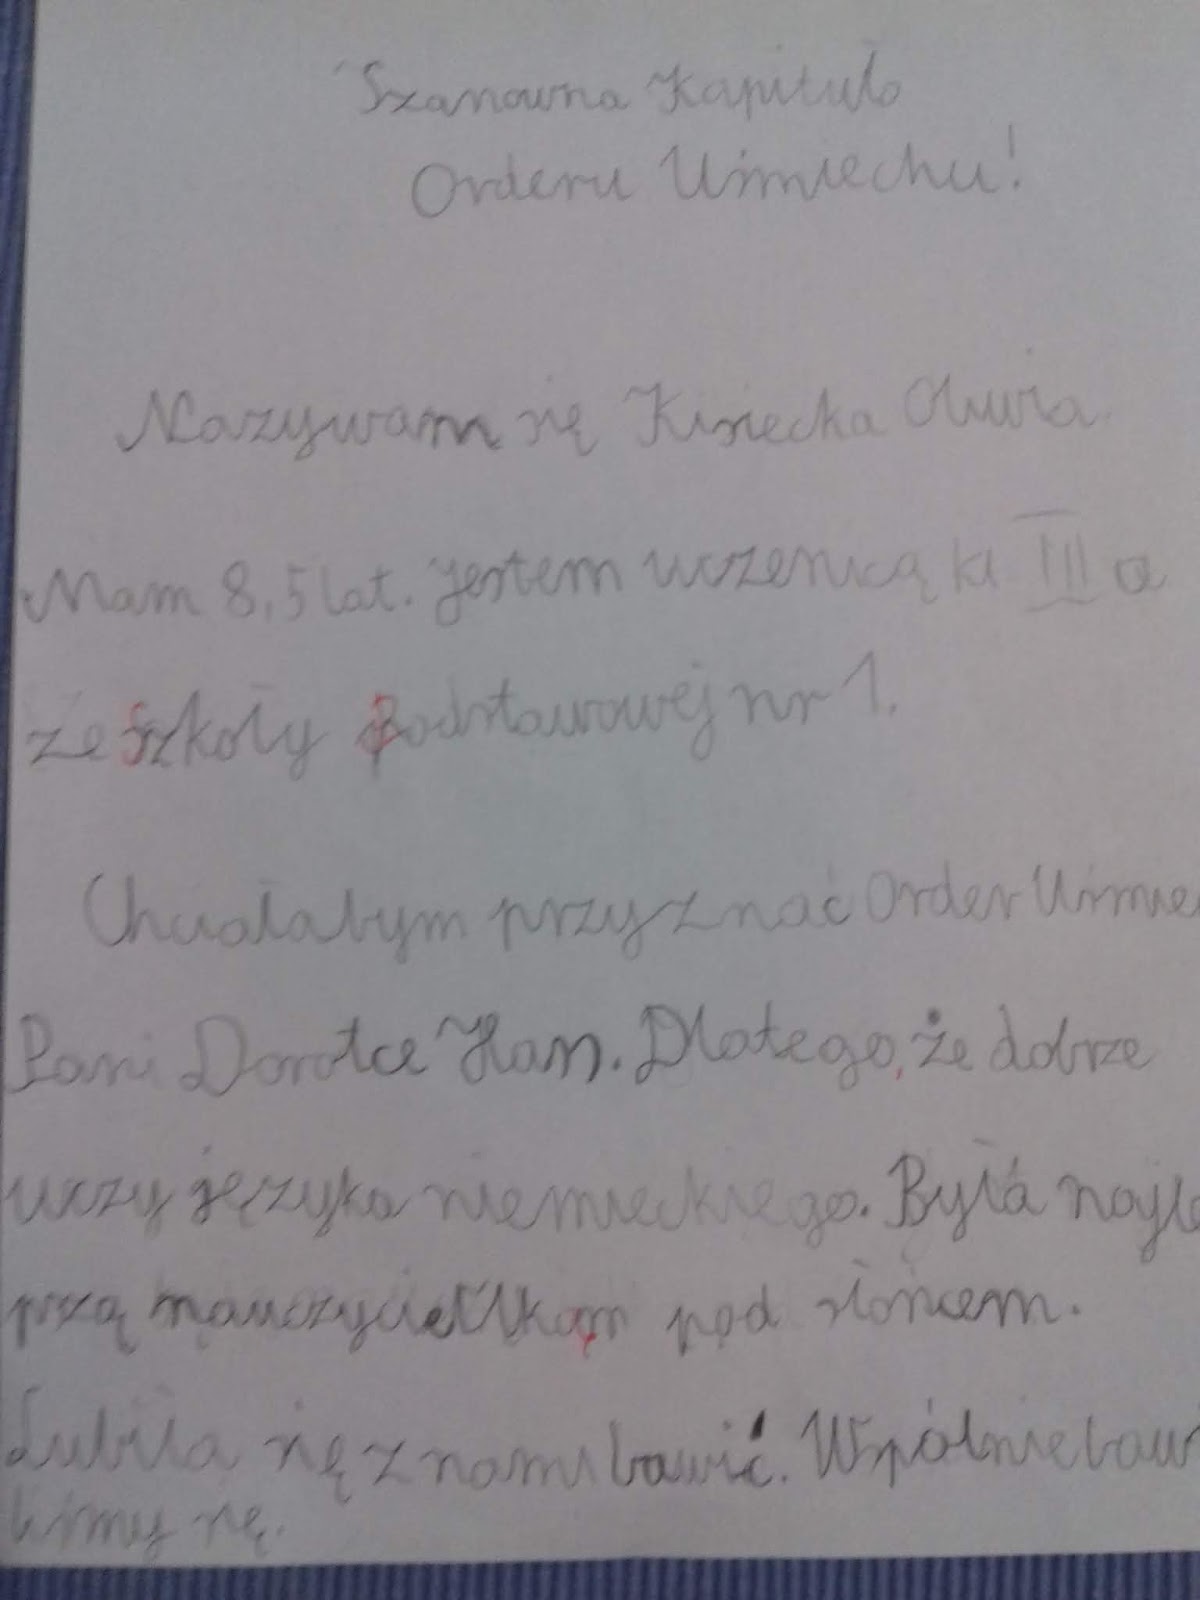 Szanowna Kapituło
Orderu Uśmiechu!
Nazywam się Kisiecka Oliwia.
Mam 8,5 lat. Jestem uczenicą kl III a
ze Szkoły Podstawowej nr 1.
Chciałabym przyznać Order Uśmie
Pani Dorotce Han. Dlatego, że dobrze
uczy języka niemieckiego. Była najle
pszą nauczycielką pod słońcem.
Lubiła się z nami bawić. Wspólnie baw
liśmy się.